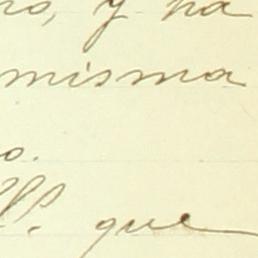 ro, y ha
misma
o.
V. que